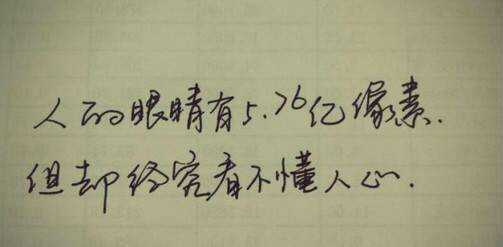 人的眼睛有5.76亿像素.
但却终究看不懂人心.